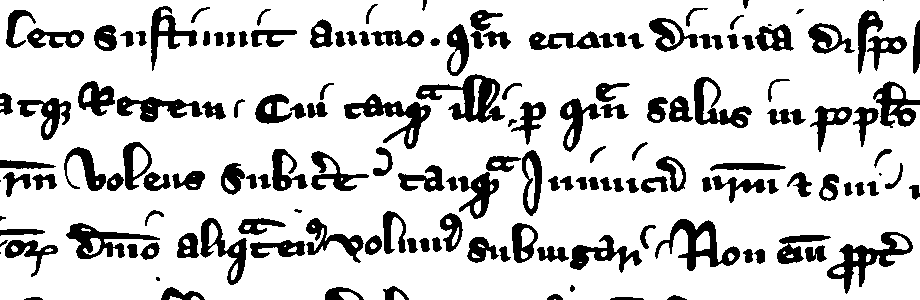 leto sustinuit animo. qm̅ eciam diuina dispos
atq; Regem. Cui tanqᵃ illi p̲ qm̅ salus in popl̅o
rm̅ volens subic̅e tanqᵃ Inimicu̅ urm̅ ⁊ sui
oꝝ dn̅io aliqᵃten⁹ volum⁹ subiugari. Non eni̅ ꝓpt̅